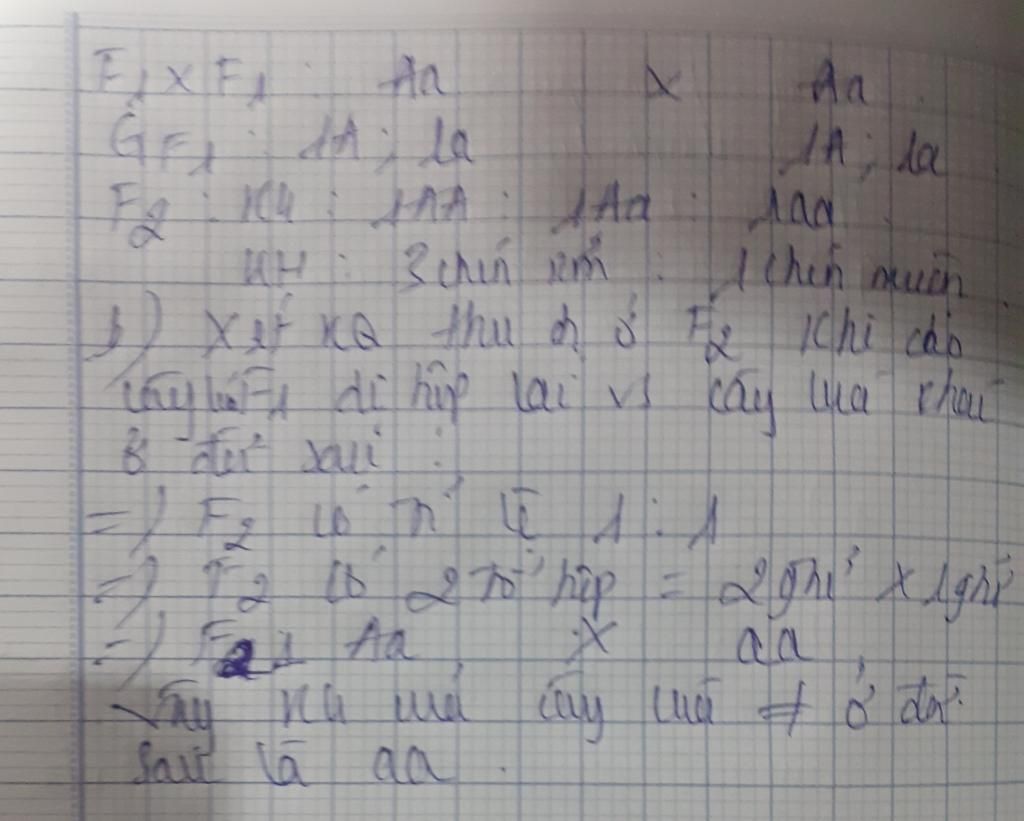 F₁ x F₁ : Aa x Aa
G F₁ : 1A ; 1a 1A ; 1a
F₂ : KG : 1AA : 1Aa : 1aa
KH : 3 chín sớm : 1 chín muộn.
b) Xét KQ thu đc ở F₂ khi cho
cây lúa F₁ dị hợp lai vs cây lúa khác
ở đề sau :
=) F₂ có tỉ lệ 1 : 1
=) F₂ có 2 tổ hợp = 2 gtử x 1 gtử
=) F₂ Aa x aa
Vậy KG của cây lúa ≠ ở đề
sau là aa .